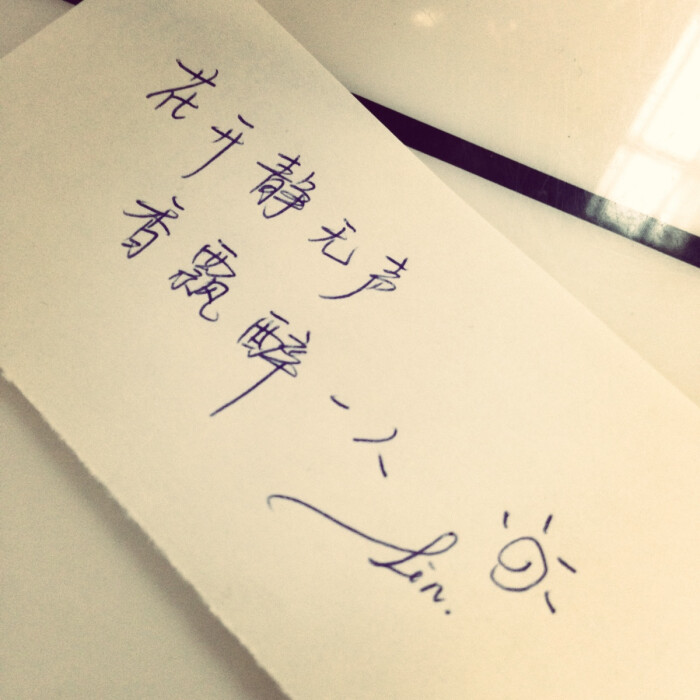 花开静无声
香飘醉一人
Lin.